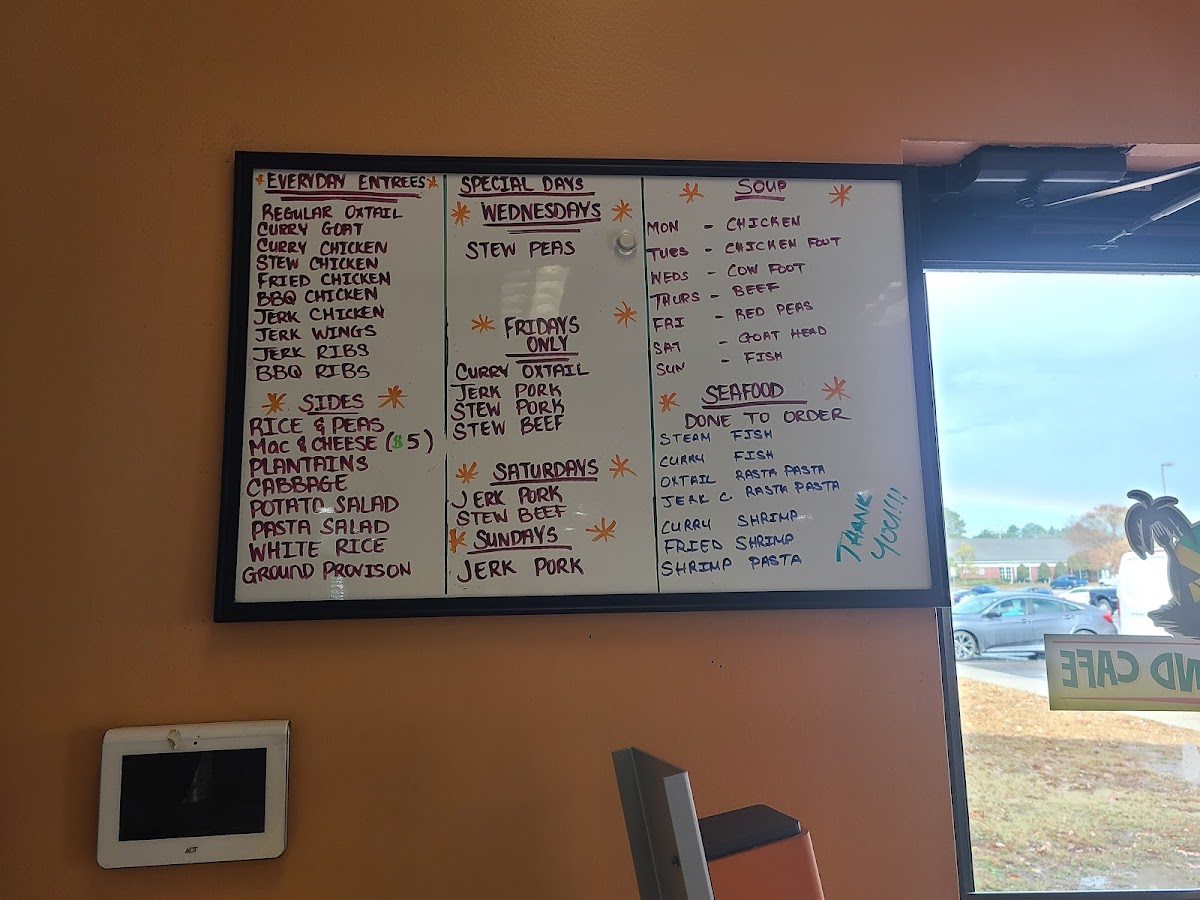 EVERYDAY ENTREES
REGULAR OXTAIL
CURRY GOAT
CURRY CHICKEN
STEW CHICKEN
FRIED CHICKEN
BBQ CHICKEN
JERK CHICKEN
JERK WINGS
JERK RIBS
BBQ RIBS
SIDES
RICE & PEAS
MAC & CHEESE ($5)
PLANTAINS
CABBAGE
POTATO SALAD
PASTA SALAD
WHITE RICE
GROUND PROVISON
SPECIAL DAYS
WEDNESDAYS
STEW PEAS
FRIDAYS
ONLY
CURRY OXTAIL
JERK PORK
STEW PORK
STEW BEEF
SATURDAYS
JERK PORK
STEW BEEF
SUNDAYS
JERK PORK
SOUP
MON - CHICKEN
TUES - CHICKEN FOOT
WEDS - COW FOOT
THURS - BEEF
FRI - RED PEAS
SAT - GOAT HEAD
SUN - FISH
SEAFOOD
DONE TO ORDER
STEAM FISH
CURRY FISH
OXTAIL RASTA PASTA
JERK C RASTA PASTA
CURRY SHRIMP
FRIED SHRIMP
SHRIMP PASTA
THANK
YOU!!!
ND CAFE
ADT